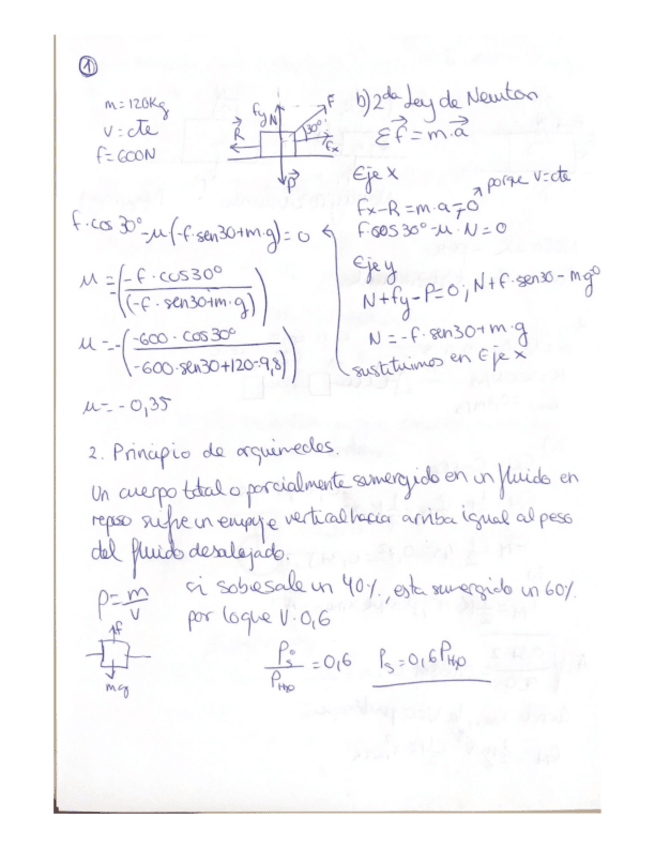 ①
m = 120Kg
V = cte
f = 600N
fy N F
R 30° Fx
P
b) 2da Ley de Newton
Σf = m·a
Eje X
porque v=cte
fx - R = m·a = 0
f·cos 30° - μ·N = 0
f·cos 30° - μ(-f·sen30 + m·g) = 0
Eje y
N + fy - P = 0; N + f·sen30 - mg
N = -f·sen30 + m·g
sustituimos en Eje X
μ = (-f·cos30° / (-f·sen30+m·g))
μ = -(-600·cos30° / (-600·sen30+120·9,8))
μ = -0,35
2. Principio de arquimedes.
Un cuerpo total o parcialmente sumergido en un fluido en
reposo sufre un empuje vertical hacia arriba igual al peso
del fluido desalojado.
ρ = m/v
si sobresale un 40%, esta sumergido un 60%.
por loque V·0,6
f
mg
Ps/PH2O = 0,6 Ps = 0,6 PH2O